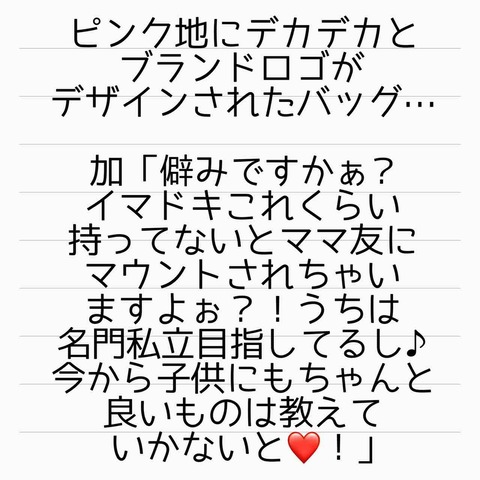 ピンク地にデカデカと
ブランドロゴが
デザインされたバッグ…
加「僻みですかぁ？
イマドキこれくらい
持ってないとママ友に
マウントされちゃい
ますよぉ？！うちは
名門私立目指してるし♪
今から子供にもちゃんと
良いものは教えて
いかないと❤️！」